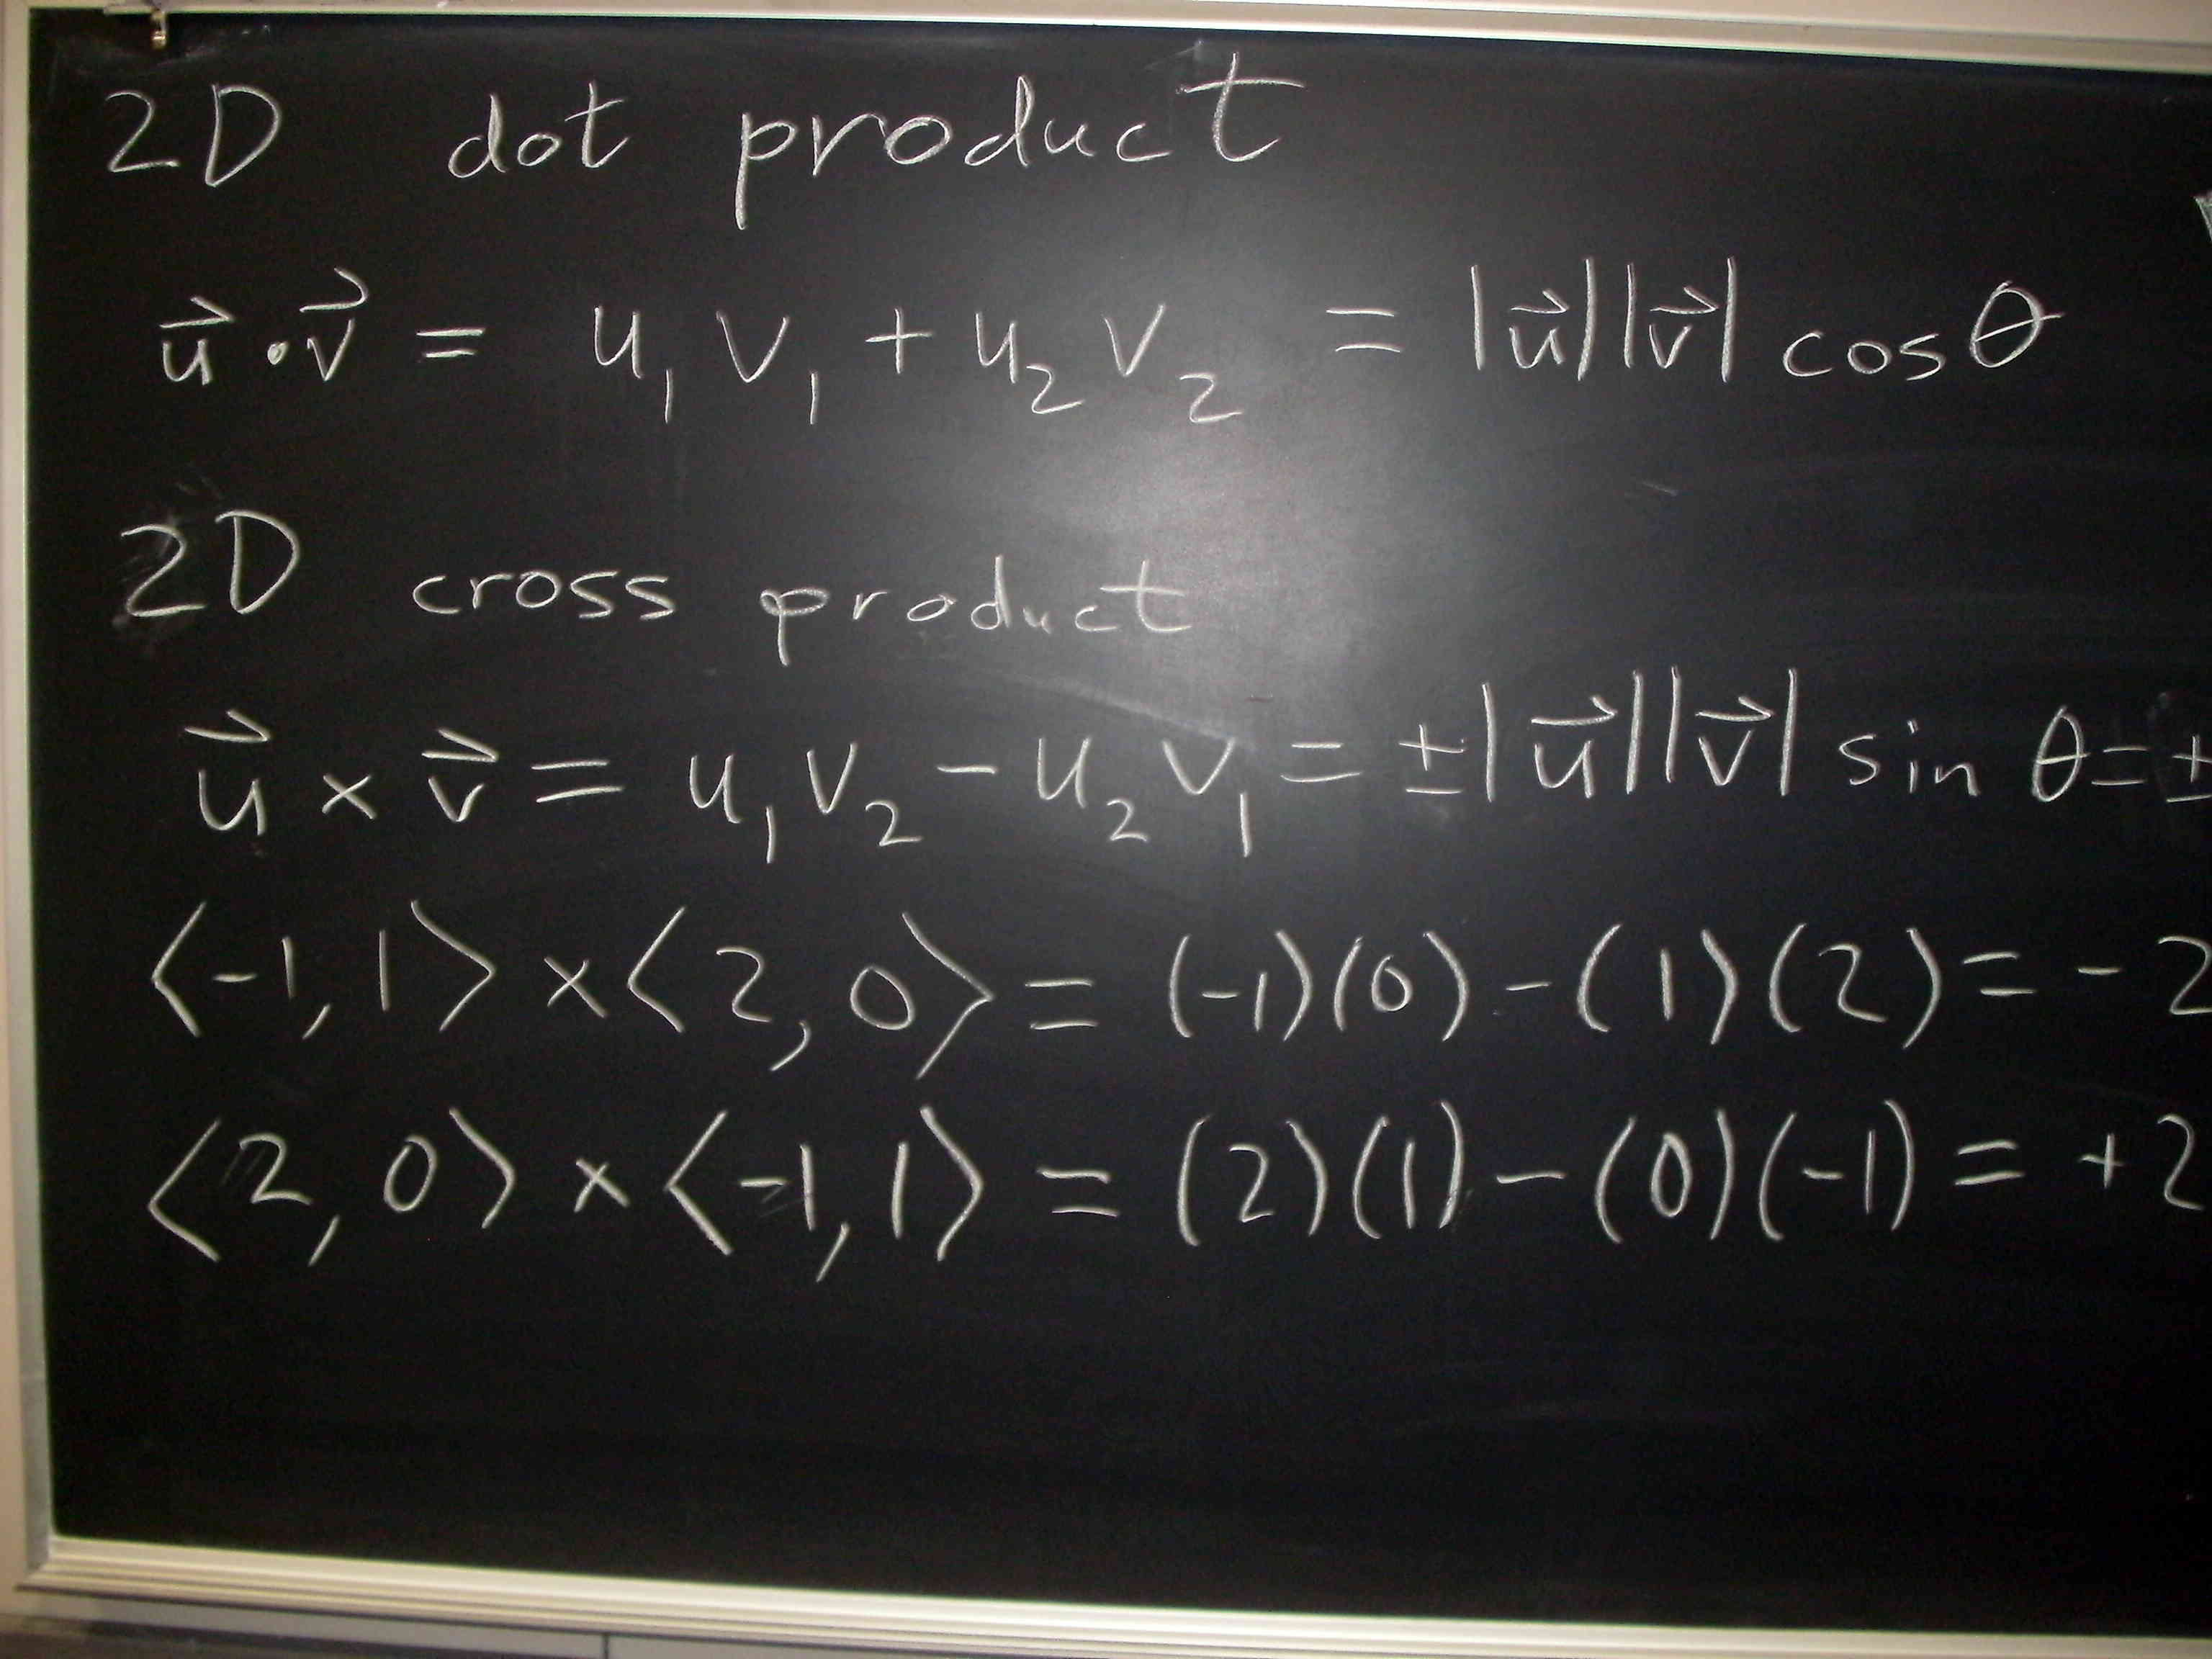 2D dot product
u⃗ · v⃗ = u₁ v₁ + u₂ v₂ = |u⃗||v⃗| cos θ
2D cross product
u⃗ × v⃗ = u₁ v₂ - u₂ v₁ = ±|u⃗||v⃗| sin θ = ±
⟨-1, 1⟩ × ⟨2, 0⟩ = (-1)(0) - (1)(2) = -2
⟨2, 0⟩ × ⟨-1, 1⟩ = (2)(1) - (0)(-1) = +2